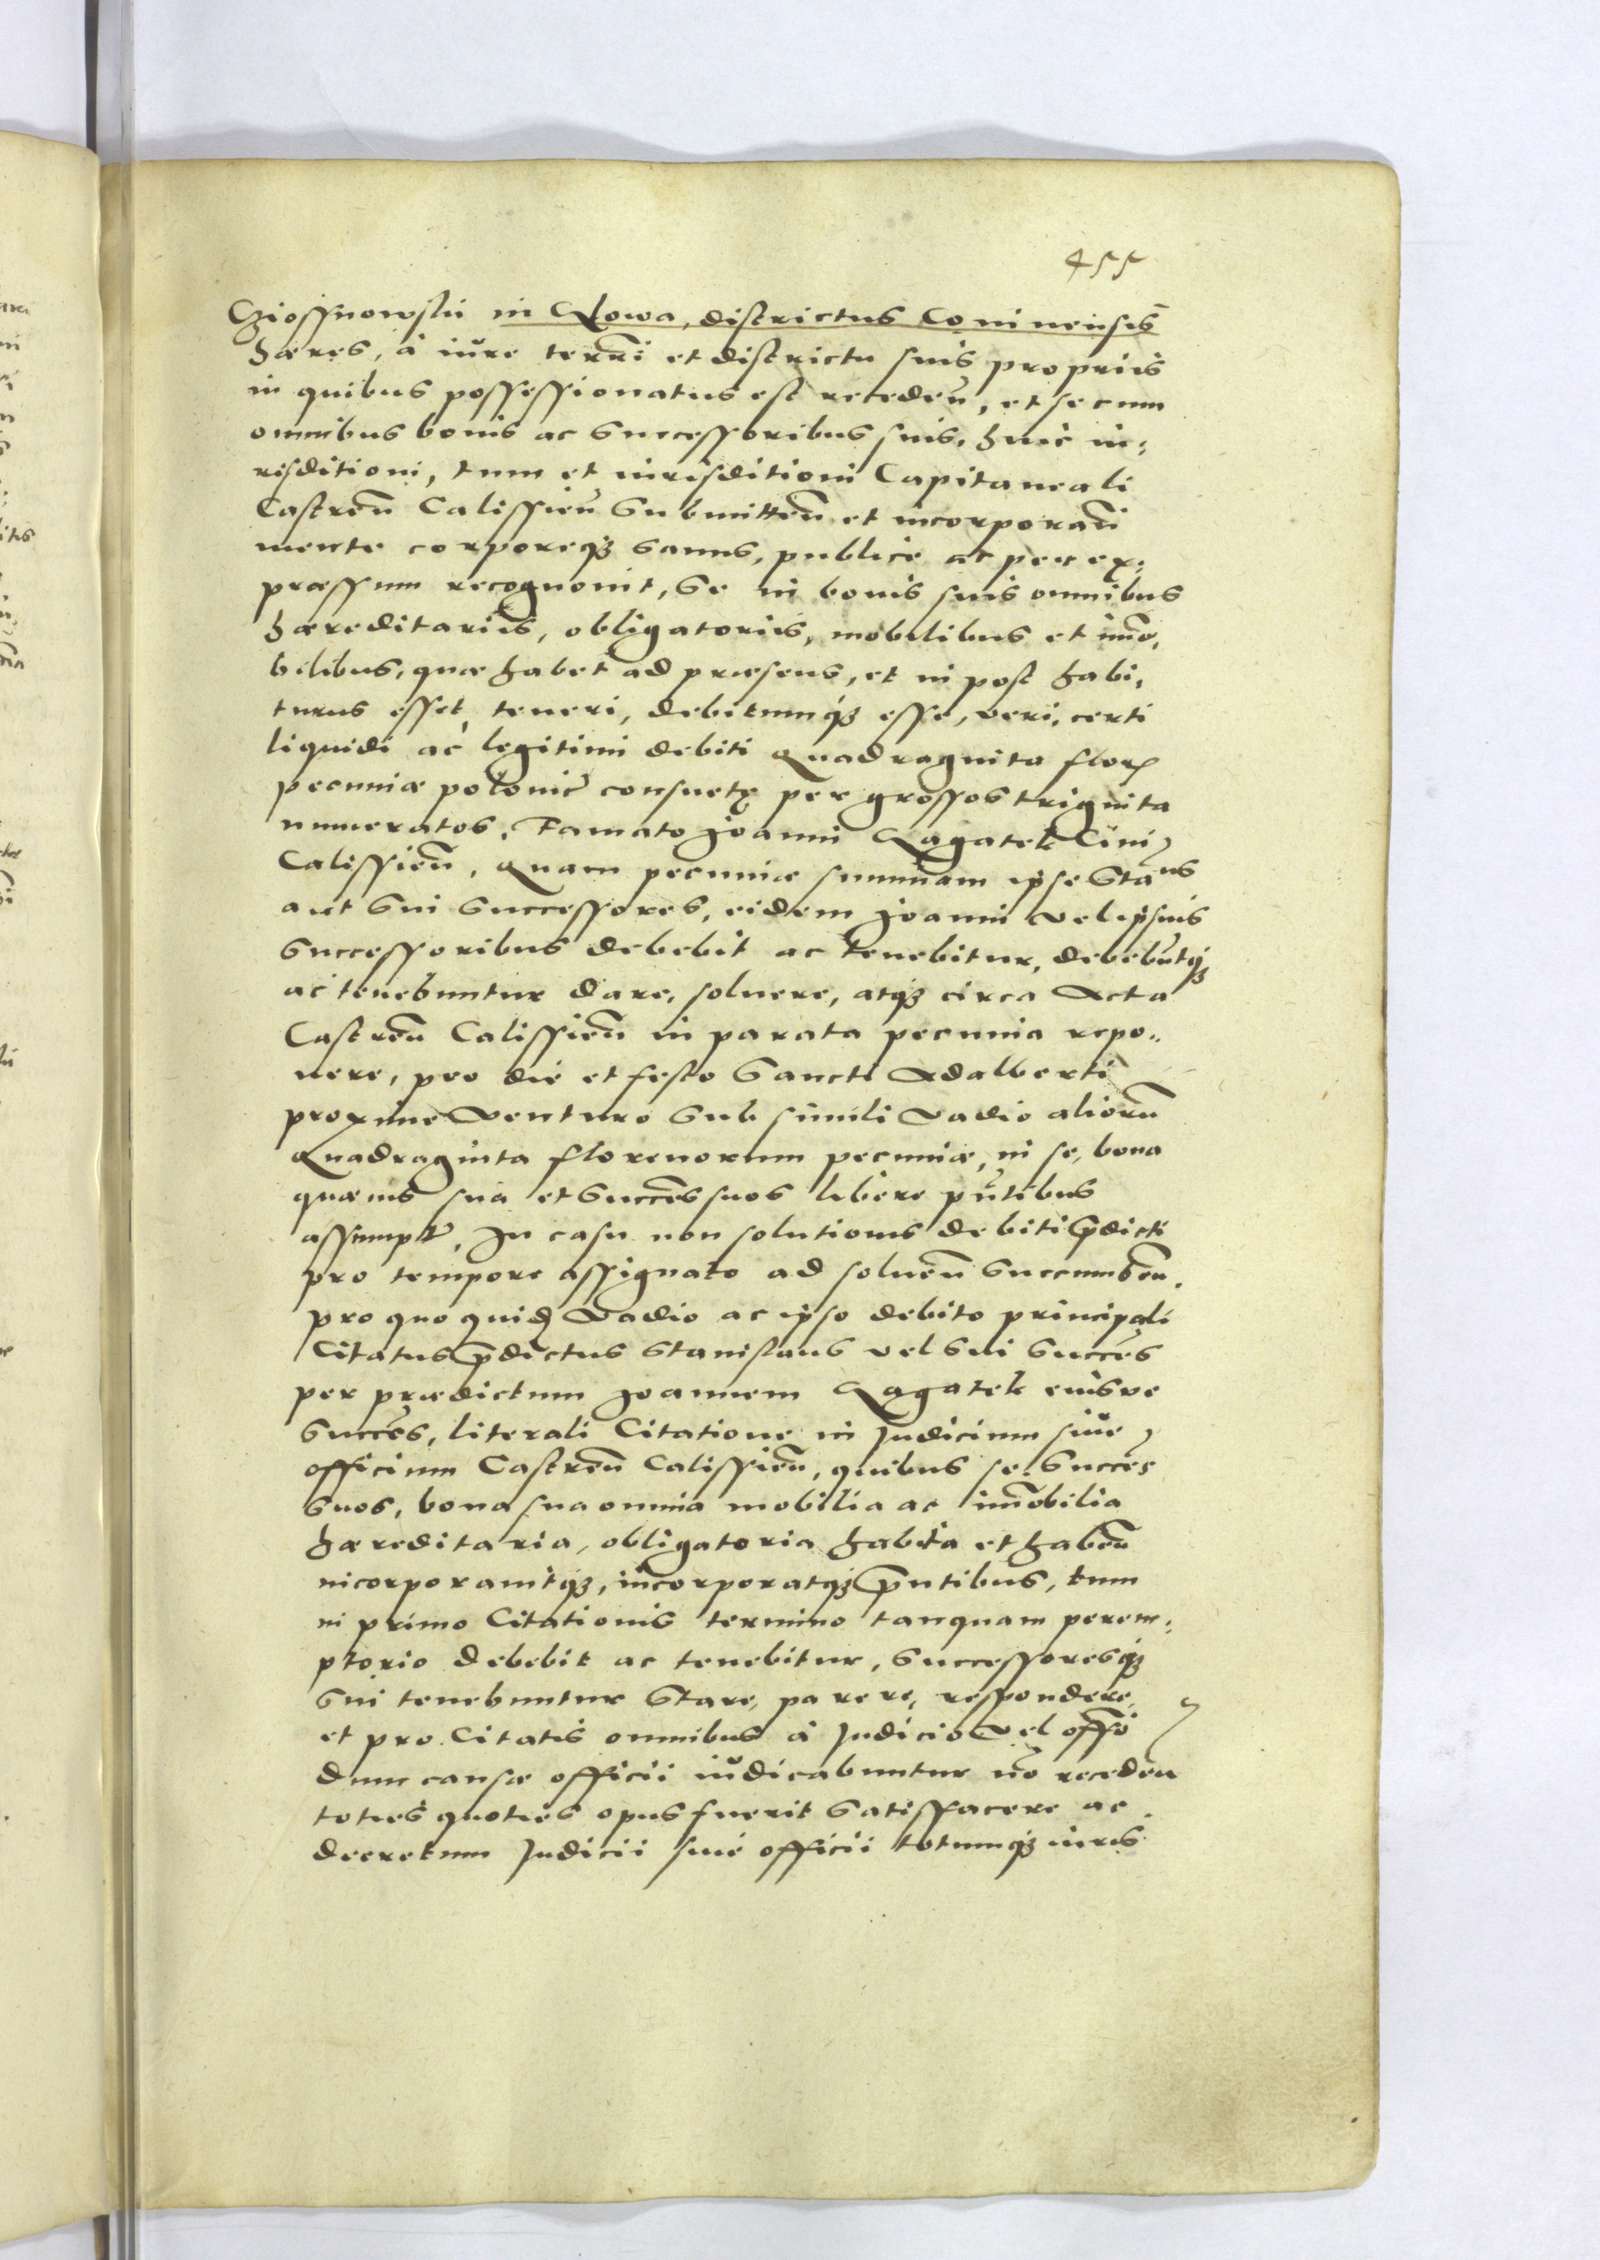 455
Cziossnowskii in Qlowa, districtus Coninensis
hæres, à iure terrri et districtu suis propriis
in quibus possessionatus est receden, et se cum
omnibus bonis ac successoribus suis, huic iu:
risditioni, tum et iurisditioni Capitaneali
Castren Calissien submitten et incorporan
mente corporeq3 sanus, publice ac per ex:
præssum recognouit, se in bonis suis omnibus
hæreditariis, obligatoriis, mobilibus et immo,
bilibus, quæ habet ad præsens, et in post habi,
turus esset, teneri, debitumq3 esse, veri, certi
liquidi ac legitimi debiti Quadraginta flor
pecuniæ polonic consuetę per grossos triginta
numeratos, Famato Joanni Qagatek Ciui
Calissien, Quam pecuniæ summam ipse Stanus
aut sui successores, eidem Joanni vel ipsius
successoribus debebit ac tenebitur, debebuntq3
ac tenebuntur dare, soluere, atq3 circa Acta
Castren Calissien in parata pecunia repo:
nere, pro die et festo Sancti Adalberti
proxime venturo sub simili vadio aliorum
Quadraginta florenorum pecuniæ, in se, bona
quæuis sua et succes suos libere pntibus
assumpt, In casu non solutionis debiti prdicti
pro tempore assignato ad soluen succumben.
pro quo quid vadio ac ipso debito principali
Citatus prdictus Stanislaus vel sui succes
per prædictum Joannem Qagatek eiusve
succes, literali Citatione in Judicium siue
officium Castren Calissien, quibus se, succes
suos, bona sua omnia mobilia ac immobilia
hæreditaria, obligatoria habita et haben
incorporauitq3, incorporatq3 prntibus, tum
in primo Citationis termino tanquam perem:
ptorio debebit ac tenebitur, successoresq3
sui tenebuntur stare, parere, respondere,
et pro Citatis omnibus à Judicio vel offo
dum causæ officii iudicabuntur no receden
toties quoties opus fuerit satisfacere ac
decretum Judicii siue officii totumq3 iuris